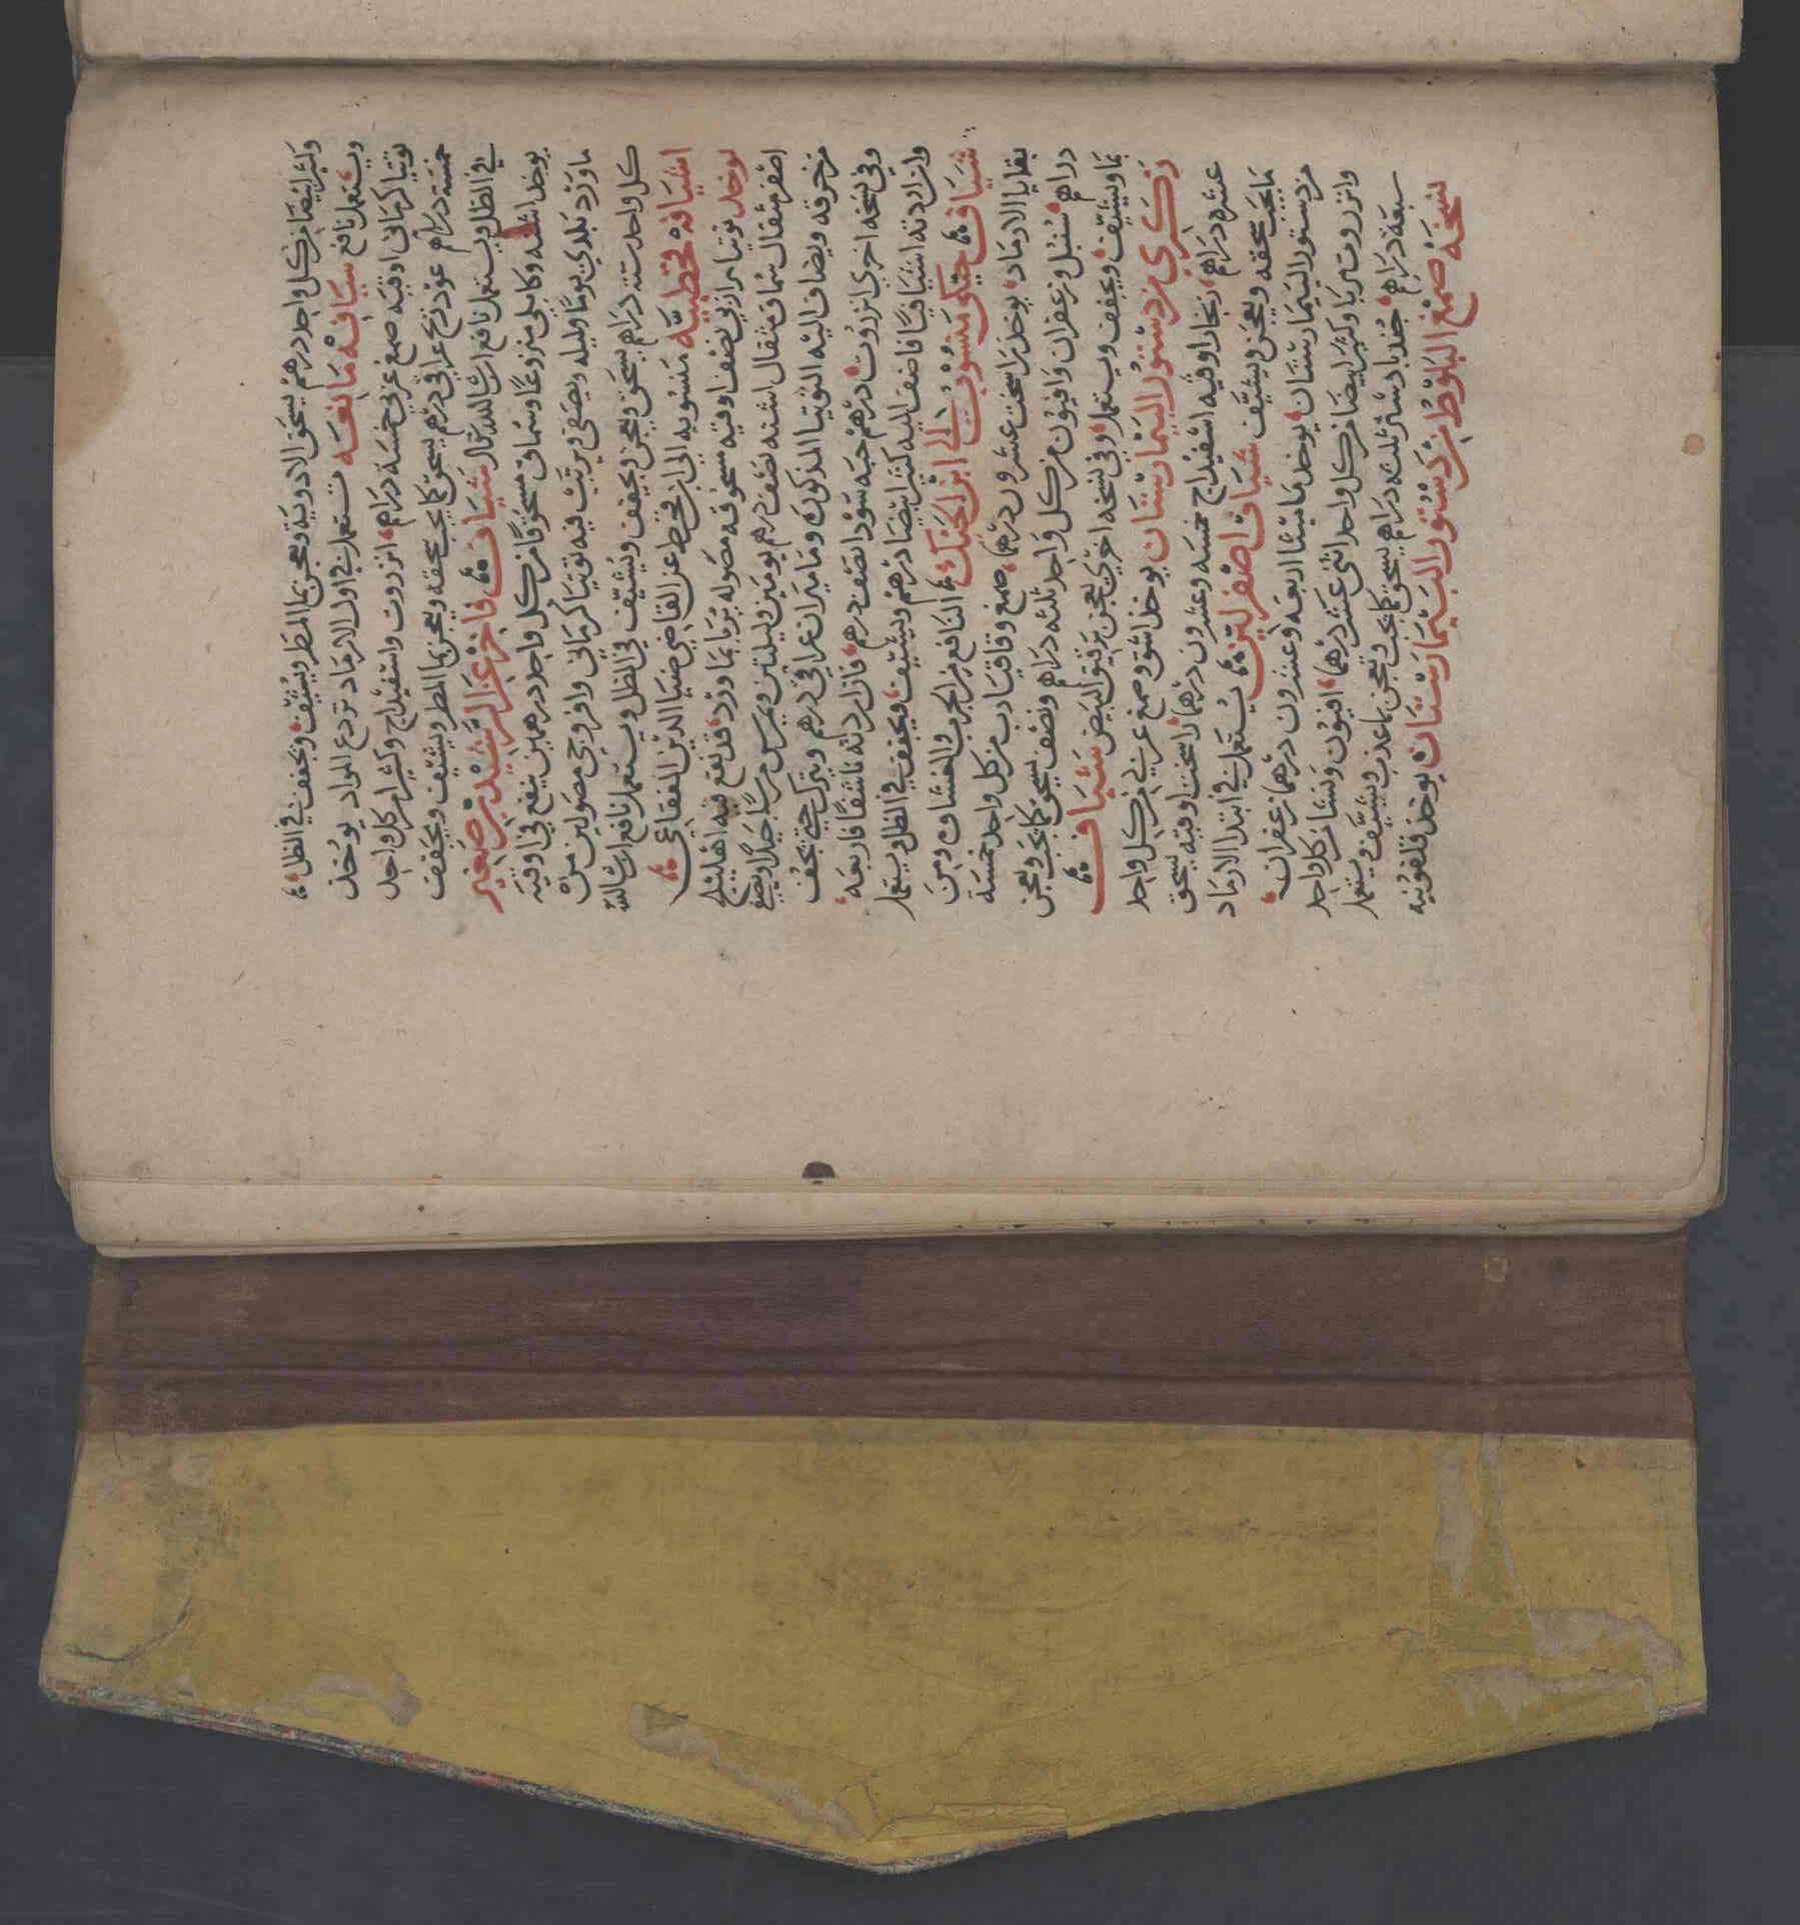 وكثيرا بيضا من كل واحد درهم يسحق الادوية ويعجن بما المطر ويشيف ويجفف في الظل
ويستعمل نافع شيافه مانعه تستعمل في اول الارماد تردع المواد يوخذ
توتيا كرماني اوقيه صمغ عربي خمسة دراهم انزروت واسفيداج وكثيرا من كل واحد
خمسة دراهم عود ريح عراقي درهم يسحق كما يجب سحقه ويعجن بما المطر ويشيف ويجفف
في الظل ويستعمل نافع ان شا الله تعالى شياف فاخر عز الرشيد بن صغير
يوخذ اشنه وكابلي منزوعا وسماق مسحوقا من كل واحد درهمين ينقع في اوقيه
ماورد بلدي يوما وليله ويصفى ويربب فيه توتيا كرماني وافروجي مصولين من
كل واحد ستة دراهم يسحق ويعجن ويجفف ويشيف في الظل ويستعمل نافع ان شا الله
اشيافه قحطبيه منسوبه الى ابن قحطبه عن القاضي ضيا الدين الفقاعي
يوخذ توتيا برازني نصف اوقيه مسحوقه مصوله تربا بماورد قد نقع فيه اهليلج
اصفر مثقال سماق مثقال اشنه نصف درهم يومين وليلتين ويمرس مرسا جيدا ويصفى
من خرقه ويضاف اليه التوتيا المذكوره وماميران عراقي درهم ويترك حتى يجف
وفي نسخه اخرى انزروت درهم حبه سودا نصف درهم فان اردته ناشفا فاربعه
وان اردته اشيافيا فاضف اليه كثيرا بيضا درهم ويشيف ويجفف في الظل ويستعمل
شياف جيكي منسوب الى ابن الحبك النافع من الجرب والغشاوه ومن
بقايا الارماد يوخذ راسخت عشرون درهما صمغ وقاقيا ذب من كل واحد خمسة
دراهم سنبل وزعفران وافيون من كل واحد ثلثه دراهم ونصف يسحق كما يجب ويعجن
بما ويشيف ويجفف ويستعمل وفي نسخه اخرى يعجن برقيق البيض شياف
زنكري من دستور البيمارستان يوخذ اشق وصمغ عربي من كل واحد
عشرة دراهم زنجار اوقيه اسفيداج خمسة وعشرون درهما راسخت اوقيه يسحق
ما يجب سحقه ويعجن ويشيف شياف اصفر لين يستعمل في ابتدا الارماد
من دستور البيمارستان يوخذ ماميثا اربعه وعشرون درهما زعفران
وانزروت مربا وكثيرا بيضا من كل واحد اثنى عشر درهما افيون ونشا من كل واحد
سبعة دراهم جندبادستر ثلثه دراهم يسحق كما يجب ويعجن بما عذب ويشيف ويستعمل
نسخه صمغ البلوط من دستور البيمارستان يوخذ قلفونيه